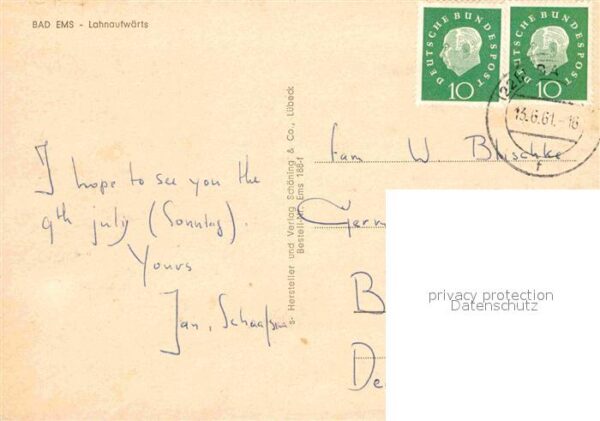 BAD EMS - Lahnaufwärts
DEUTSCHE BUNDESPOST
10
DEUTSCHE BUNDESPOST
10
13.6.61.-16
f
I hope to see you the
9th july (Sonntag).
Yours
Jan,
s- Hersteller und Verlag Schöning & Co., Lübeck
Bestell-Nr. Ems 188-f
Fam W. Blischke
Germ
B
De
privacy protection
Datenschutz